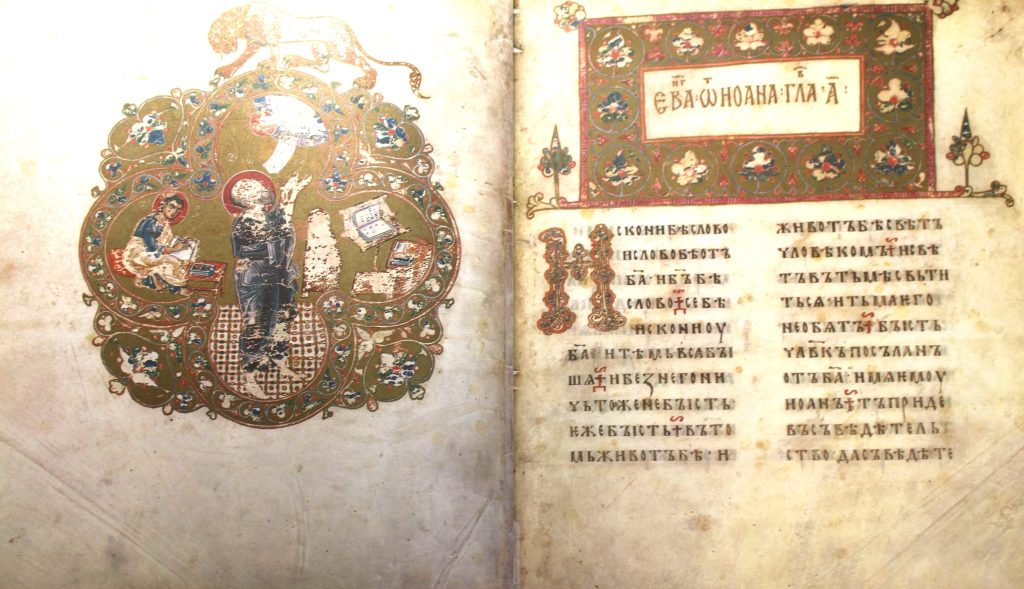 ЕВА · Ѿ ИОАНА · ГЛА · А҃ :
ИСКОНИБѢСЛОВО
ИСЛОВОБѢОТЪ
Б҃А · ИБ҃ЪБѢ
СЛОВО СЕБѢ
ИСКОНИОУ
Б҃А · ИТѢМЬВСАБꙐ
ШѦ ИБЕЗНЕГОНИ
ЧЬТОЖЕНЕБꙐСТЬ
ѤЖЕБꙐСТЬ ВЪТО
МЬЖИВОТЪБѢ · И
ЖИВОТЪБѢСВѢТЪ
ЧЛОВѢКОМЪ ИСВѢ
ТЪВЪТЬМѢСВЬТИ
ТЬСѦ · ИТЬМАѤГО
НЕОБѦТЪ БꙐСТЬ
ЧЛ҃ВКЪПОСЪЛАНЪ
ОТЪБ҃А · ИМѦѤМОУ
ИОАНЪ ТЪПРИДЕ
ВЪСЪВѢДѢТЕЛЬ
СТВО · ДАСЪВѢДѢТЕ